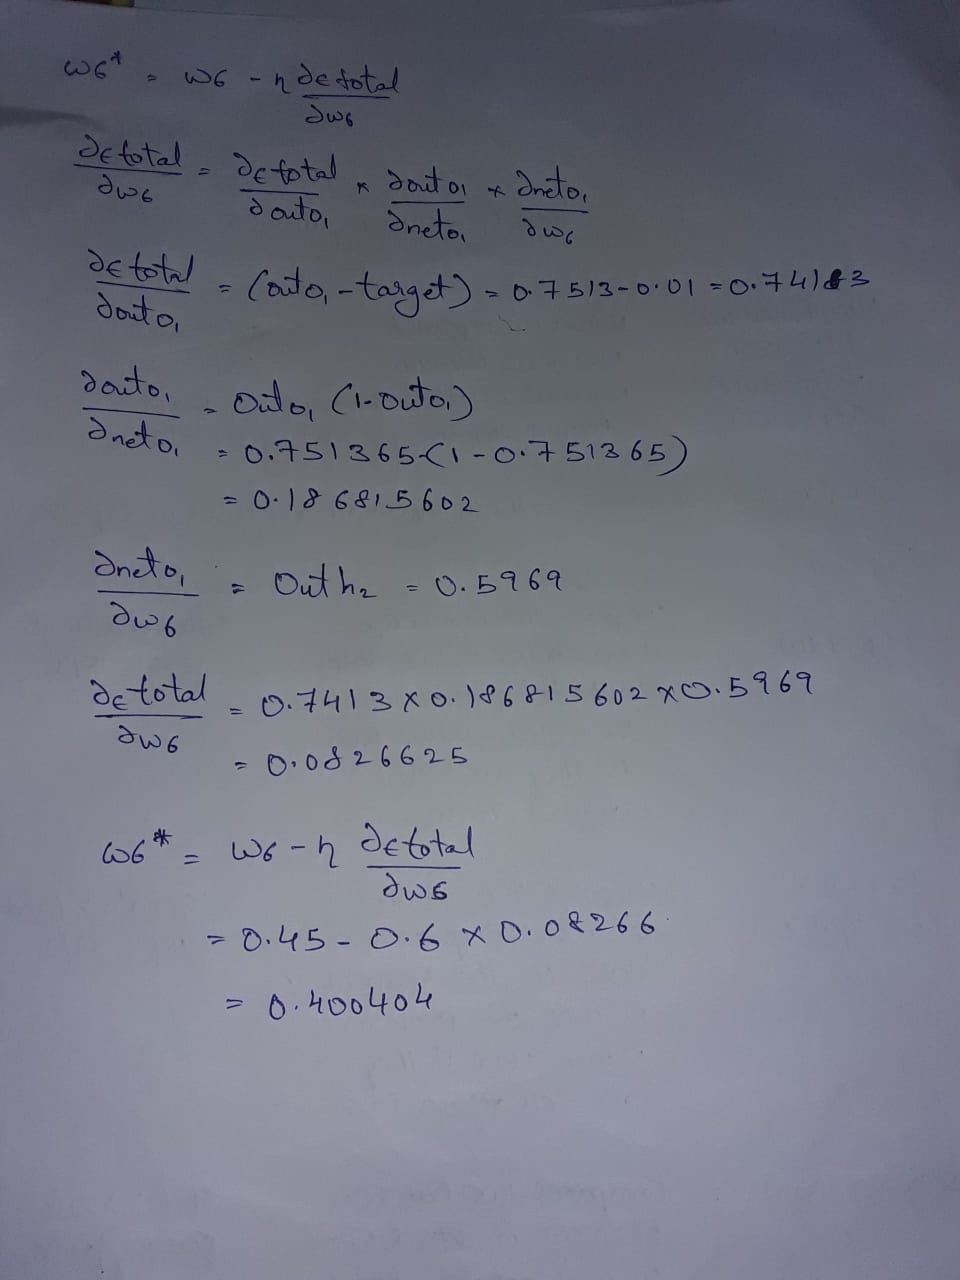 w6* = w6 - η ∂ε total / ∂w6
∂ε total / ∂w6 = ∂ε total / ∂outo₁ × ∂outo₁ / ∂neto₁ × ∂neto₁ / ∂w6
∂ε total / ∂outo₁ = (outo₁ - target) = 0.7513 - 0.01 = 0.7413
∂outo₁ / ∂neto₁ = Outo₁ (1 - outo₁)
= 0.751365 (1 - 0.751365)
= 0.186815602
∂neto₁ / ∂w6 = Out h₂ = 0.5969
∂ε total / ∂w6 = 0.7413 × 0.186815602 × 0.5969
= 0.0826625
w6* = w6 - η ∂ε total / ∂w6
= 0.45 - 0.6 × 0.08266
= 0.400404